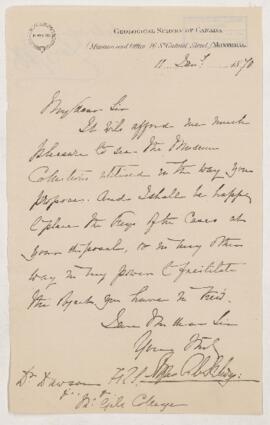 GEOLOGICAL SURVEY OF CANADA
(Museum and Office 76 St Gabriel Street) MONTREAL
11 Jany 1870
My dear Sir
It will afford me much
pleasure to see the Museum
Collections utilised in the way you
propose. And I shall be happy
to place the Keys of the Cases at
your disposal, or in any other
way in my power to facilitate
the object you have in view.
I am My dear Sir
Yours truly
Dr Dawson F.R.S.
McGill College